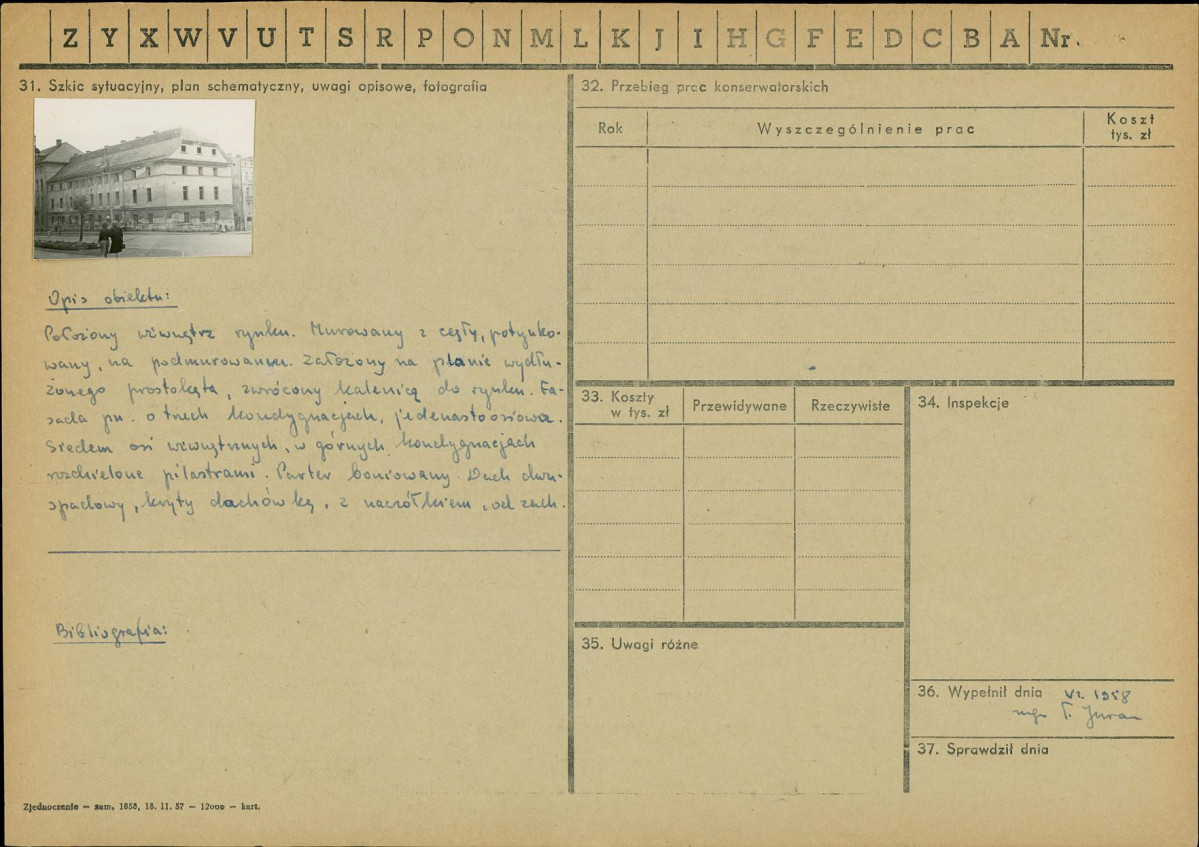 Z Y X W V U T S R P O N M L K J I H G F E D C B A Nr.
31. Szkic sytuacyjny, plan schematyczny, uwagi opisowe, fotografia
Opis obiektu:
Położony wewnątrz rynku. Murowany z cegły, potynko-
wany, na podmurowaniu. Założony na planie wydłu-
żonego prostokąta, zwrócony kalenicą do rynku. Fa-
sada pn. o trzech kondygnacjach, jedenastoosiowa.
Siedem osi wewnętrznych, w górnych kondygnacjach
rozdzielone pilastrami. Parter boniowany. Dach dwu-
spadowy, kryty dachówką, z naczółkiem, od zach.
Bibliografia:
Zjednoczenie — zam. 1858, 18. 11. 57 — 12000 — kart.
32. Przebieg prac konserwatorskich
Rok
Wyszczególnienie prac
Koszt
tys. zł
33. Koszty
w tys. zł
Przewidywane
Rzeczywiste
34. Inspekcje
35. Uwagi różne
36. Wypełnił dnia VI. 1958
mgr T.
37. Sprawdził dnia